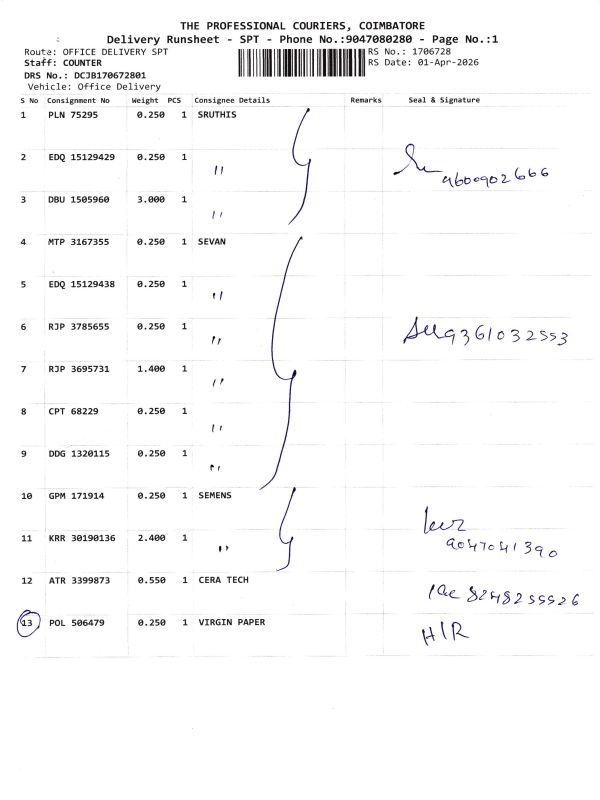 THE PROFESSIONAL COURIERS, COIMBATORE
Delivery Runsheet - SPT - Phone No.:9047080280 - Page No.:1
Route: OFFICE DELIVERY SPT RS No.: 1706728
Staff: COUNTER RS Date: 01-Apr-2026
DRS No.: DCJB170672801
Vehicle: Office Delivery
S No Consignment No Weight PCS Consignee Details Remarks Seal & Signature
1 PLN 75295 0.250 1 SRUTHIS
2 EDQ 15129429 0.250 1 " 9600902666
3 DBU 1505960 3.000 1 "
4 MTP 3167355 0.250 1 SEVAN
5 EDQ 15129438 0.250 1 "
6 RJP 3785655 0.250 1 " 9361032553
7 RJP 3695731 1.400 1 "
8 CPT 68229 0.250 1 "
9 DDG 1320115 0.250 1 "
10 GPM 171914 0.250 1 SEMENS
11 KRR 30190136 2.400 1 " 9047041390
12 ATR 3399873 0.550 1 CERA TECH 8248255526
13 POL 506479 0.250 1 VIRGIN PAPER H/R